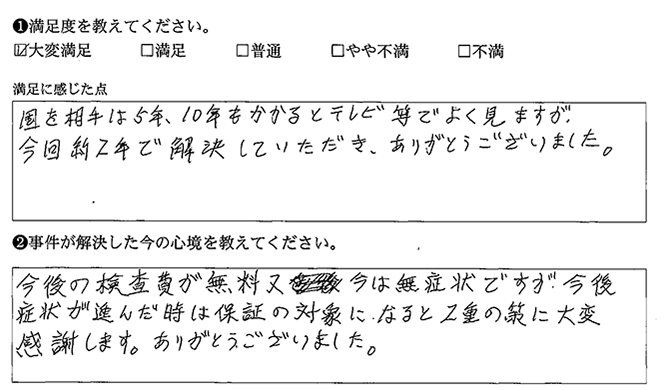 ❶満足度を教えてください。
☑大変満足 □満足 □普通 □やや不満 □不満
満足に感じた点
国を相手は5年、10年もかかるとテレビ等でよく見ますが、
今回約2年で解決していただき、ありがとうございました。
❷事件が解決した今の心境を教えてください。
今後の検査費が無料又 今は無症状ですが 今後
症状が進んだ時は保証の対象になると2重の策に大変
感謝します。ありがとうございました。